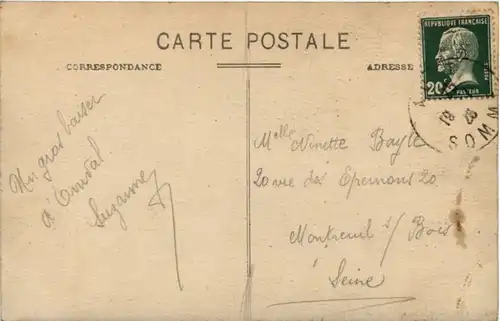 CARTE POSTALE
CORRESPONDANCE
ADRESSE
RÉPUBLIQUE FRANÇAISE
20c
POSTES
PASTEUR
Un gros baiser
d'
Suzanne
Melle Ninette Bayle
20 rue des 20
Montreuil s/ Bois
Seine